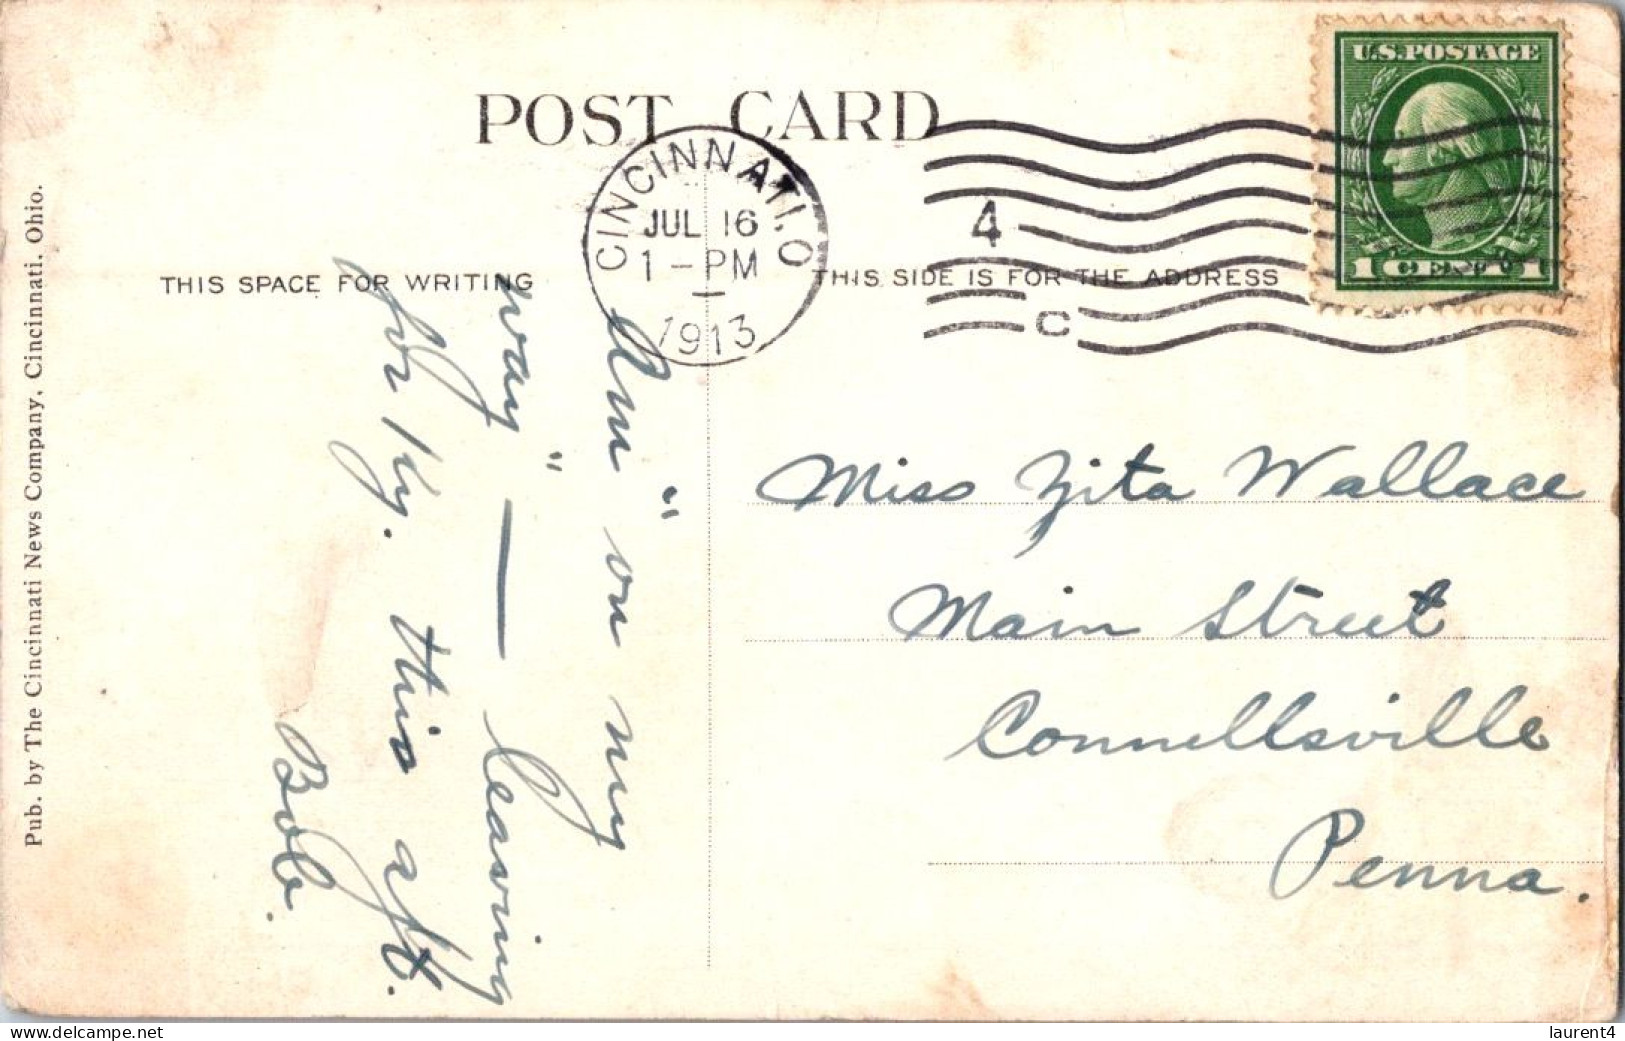 POST CARD
CINCINNATI, O
JUL 16
1 - PM
1913
4
C
U.S. POSTAGE
1 CENT 1
THIS SPACE FOR WRITING
THIS SIDE IS FOR THE ADDRESS
Am "on my
way" — leaving
for Ky. this aft.
Bob.
Miss Zita Wallace
Main Street
Connellsville
Penna.
Pub. by The Cincinnati News Company, Cincinnati, Ohio.
www.delcampe.net
laurent4